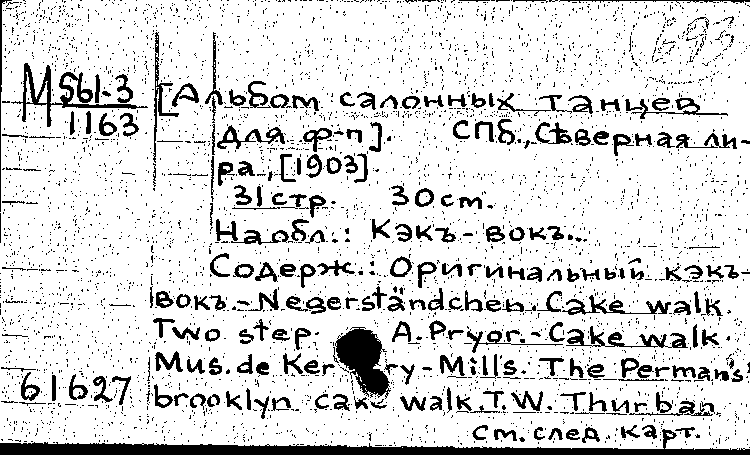 693
М 561-3
1163
[Альбом салонных танцев
для ф-п]. СПб., Сѣверная ли-
ра, [1903].
31 стр. 30 см.
На обл.: Кэкъ-вокъ...
Содерж.: Оригинальный кэкъ-
вокъ.-Negerständchen. Cake walk.
Two step. A. Pryor.-Cake walk.
Mus. de Ker ry-Mills. The Perman's
61627
brooklyn cake walk. T.W. Thurban
См. след. карт.